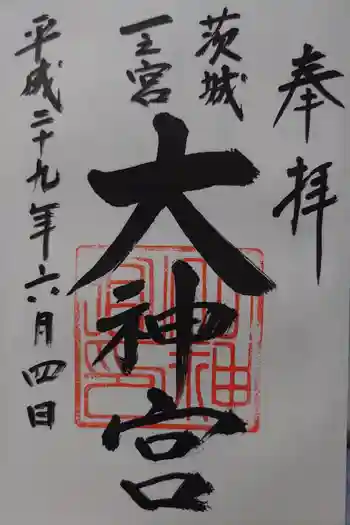 奉拝
茨城
一王宮
大神宮
平成二十九年六月四日